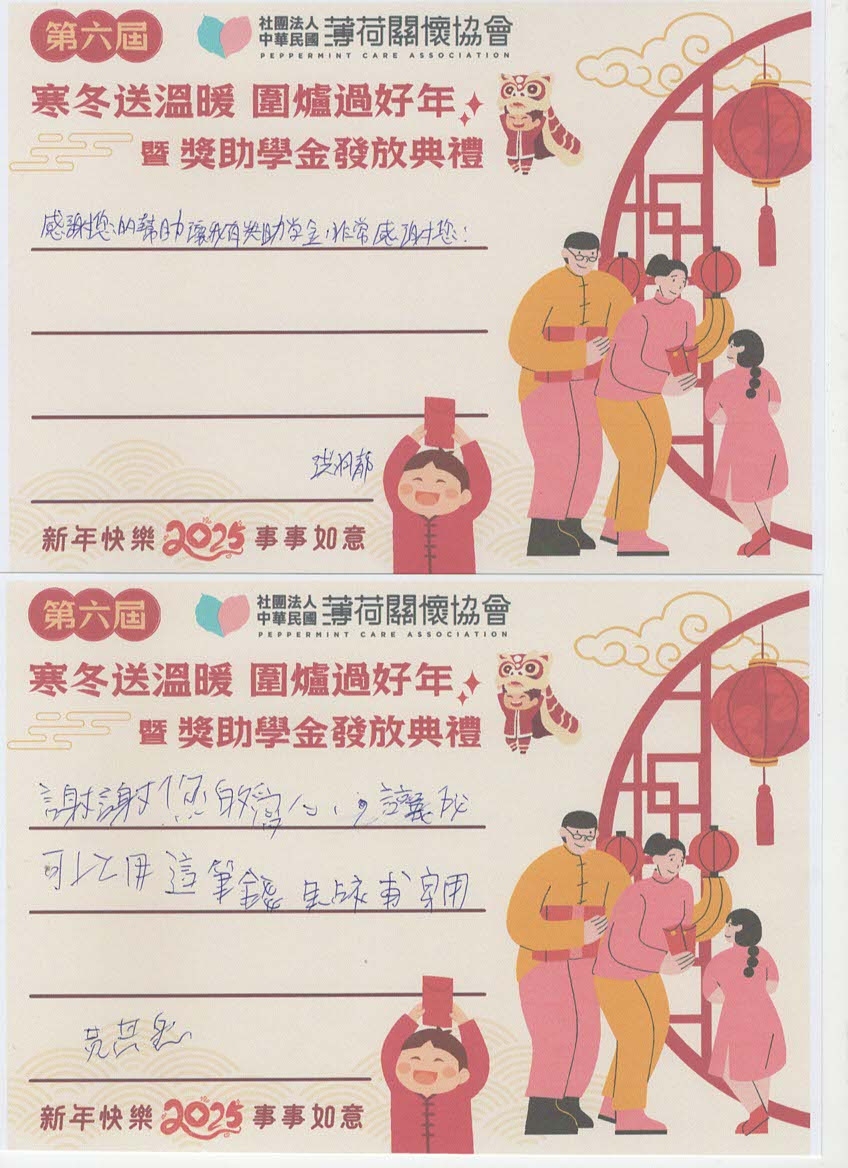 第六屆
社團法人
中華民國 薄荷關懷協會
PEPPERMINT CARE ASSOCIATION
寒冬送溫暖 圍爐過好年
暨 獎助學金發放典禮
感謝您的幫助讓我有奖助学金,非常感謝您!
新年快樂 2025 事事如意
第六屆
社團法人
中華民國 薄荷關懷協會
PEPPERMINT CARE ASSOCIATION
寒冬送溫暖 圍爐過好年
暨 獎助學金發放典禮
謝謝您的愛心,讓我
可以用這筆錢 家用
新年快樂 2025 事事如意